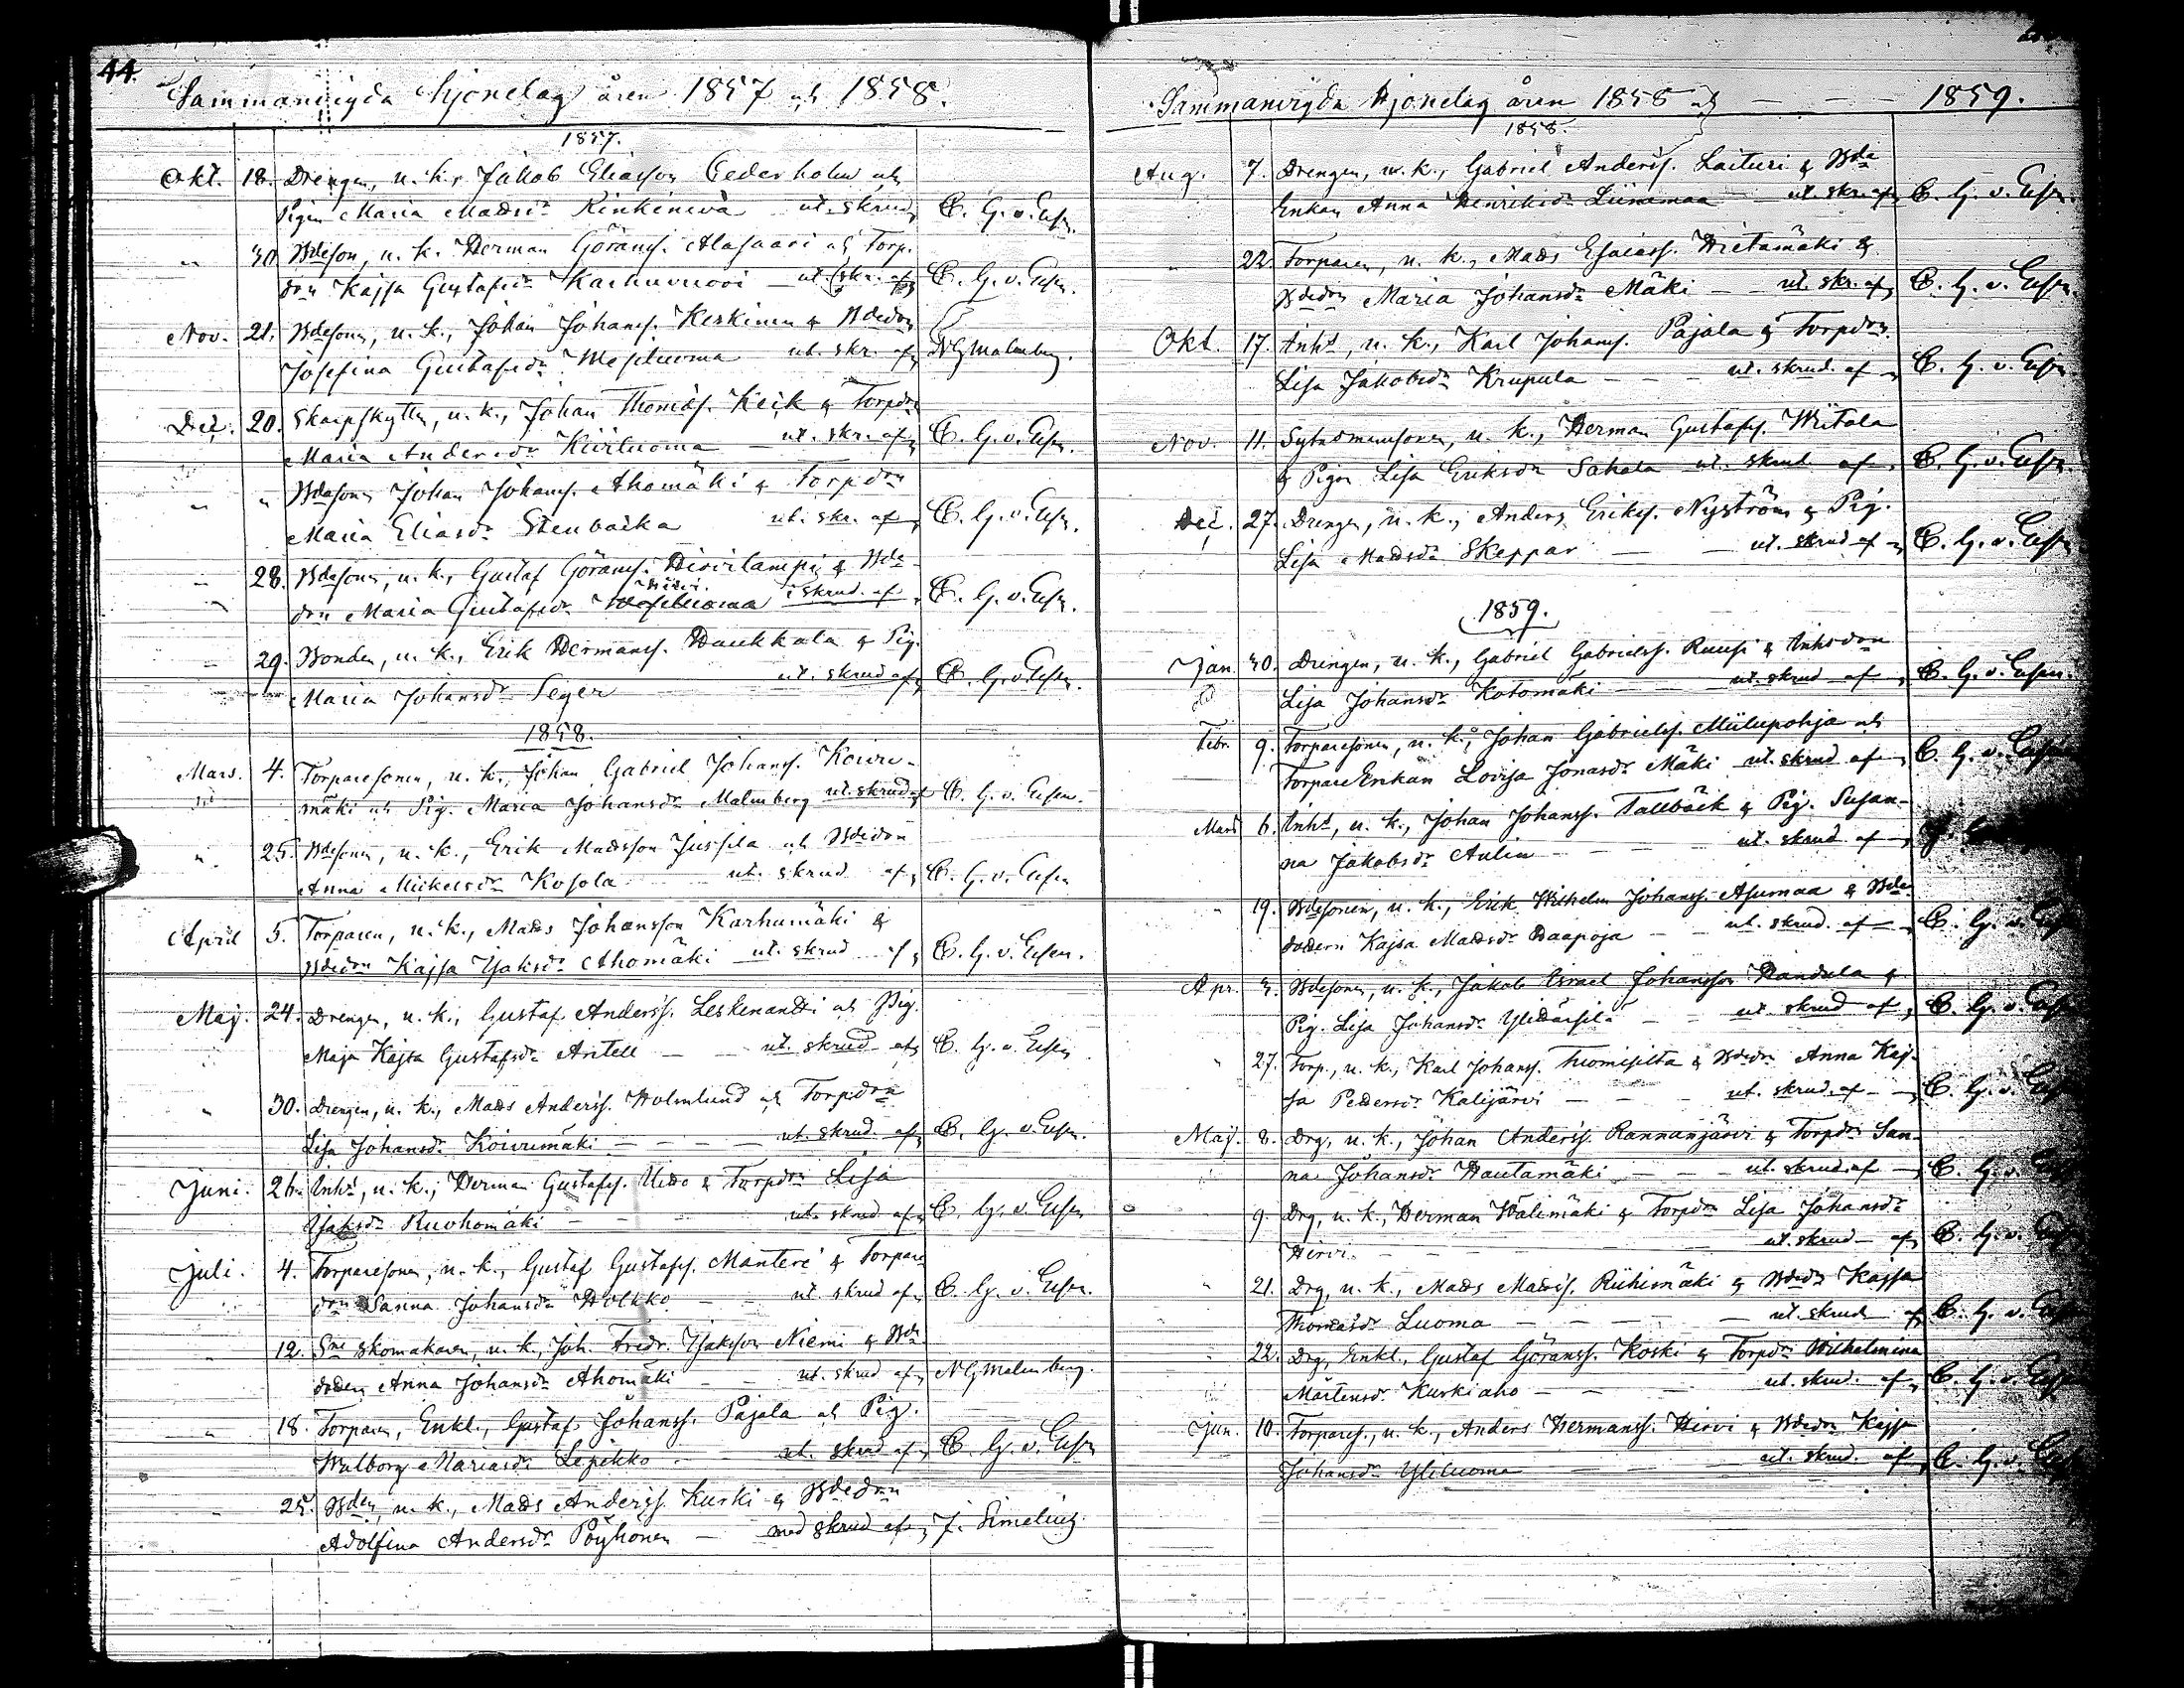 44.
Sammanvigda Hjonelag åren 1857 och 1858.
1857.
Okt. 18. Drengen, u. k., Jakob Eliasson Cederholm och
Pigan Maria Madsdr Kinkinevä ut. skrud C. G. v. Essen.
" 30. Bdeson, u. k. Herman Göranss. Alasaari och Torp.
drn Kajsa Gustafsdr Karhuvuori ut. skr. af C. G. v. Essen.
Nov. 21. Bdesonen, u. k., Johan Johanss. Keskinen & Bdedrn
Josefina Gustafsdr Mesiluoma ut. skr. af N G Malmberg.
Dec. 20. Skarpskytten, u. k., Johan Thomass. Keik & Torpdrn
Maria Andersdr Kiviluoma ut. skr. af C. G. v. Essen.
" " Bdesonen Johan Johanss. Ahomäki & Torpdrn
Maria Eliasdr Stenbacka ut. skr. af C. G. v. Essen.
" 28. Bdesonen, u. k., Gustaf Göranss. Hirvilampi & Bde-
drn Maria Gustafsdr skrud. af C. G. v. Essen.
" 29. Bonden, u. k., Erik Hermanss. Haukkala & Pig.
Maria Johansdr Seger ut. skrud af C. G. v. Essen.
1858.
Mars. 4. Torparesonen, u. k., Johan Gabriel Johanss. Koivu-
mäki och Pig. Maria Johansdr Malmberg ut. skrud af C. G. v. Essen.
" 25. Bdesonen, u. k., Erik Madsson Jussila och Bdedrn
Anna Mickelsdr Kosola ut. skrud af C. G. v. Essen
April 5. Torparen, u. k., Mads Johansson Karhumäki &
Bdedrn Kajsa Isaksdr Ahomäki ut. skrud af C. G. v. Essen.
Maj. 24. Drengen, u. k., Gustaf Anderss. Leskenantti och Pig.
Maja Kajsa Gustafsdr Antell — ut. skrud af C. G. v. Essen
" 30. Drengen, u. k., Mads Anderss. Holmlund och Torpdrn
Lisa Johansdr Koivumäki — — ut. skrud. af C. G. v. Essen.
Juni. 26. Inhs, u. k., Herman Gustafss. Uitto & Torpdrn Lisa
Isaksdr Ruohomäki — — ut. skrud af C. G. v. Essen
Juli. 4. Torparesonen, u. k., Gustaf Gustafss. Mantere & Torpare
drn Sanna Johansdr Holkko — ut. skrud af C. G. v. Essen.
" 12. Sne skomakaren, u. k., Joh. Fredr. Isaksson Niemi & Bde
dodern Anna Johansdr Ahomäki — ut. skrud af N G Malmberg.
" 18. Torparen, Enkl., Gustaf Johanss. Pajala och Pig.
Walborg Mariasdr Lepikko — ut. skrud af C. G. v. Essen
" 25. Bden, u. k., Mads Anderss. Kurki & Bdedrn
Adolfina Andersdr Pöyhönen — med skrud af J. Simelius.
Sammanvigda Hjonelag åren 1858 och — — — 1859.
1858.
Aug. 7. Drengen, u. k., Gabriel Anderss. Laituri & Bde
Enkan Anna Henriksdr Liinamaa ut. skr. af C. G. v. Essen.
" 22. Torparen, u. k., Mads Esaiass. Hietamäki &
Bdedrn Maria Johansdr Mäki — ut. skr. af C. G. v. Essen.
Okt. 17. Inhs, u. k., Karl Johanss. Pajala & Torpdrn
Lisa Jakobsdr Krupula — — ut. skrud. af C. G. v. Essen
Nov. 11. Sytnomansonen, u. k., Herman Gustafss. Wiitala
& Pigan Lisa Eriksdr Sahala ut. skrud af C. G. v. Essen.
Dec. 27. Drengen, u. k., Anders Erikss. Nyström & Pig.
Lisa Madsdr Skeppar — — ut. skrud af C. G. v. Essen
1859.
Jan. 30. Drengen, u. k., Gabriel Gabrielss. Ruusi & Inhsdrn
Lisa Johansdr Kotomäki — — ut. skrud af C. G. v. Essen.
Febr. 9. Torparesonen, u. k., Johan Gabrielss. Miilupohja och
TorpareEnkan Lovisa Jonasdr Mäki ut. skrud af C. G. v. Essen
Mars 6. Inhs, u. k., Johan Johanss. Tallbäck & Pig. Susan-
na Jakobsdr Aulin — — ut. skrud. af
" 19. Bdesonen, u. k., Erik Wilhelm Johanss. Asumaa & Bde
dodern Kajsa Madsdr Haapoja — — ut. skrud. af C. G. v. Essen
Apr. 3. Bdesonen, u. k., Jakob Esrael Johansson Handula &
Pig. Lisa Johansdr Ylidärsilä — ut. skrud af C. G. v. Essen
" 27. Torp., u. k., Karl Johanss. Tuomisilta & Bdedrn Anna Kaj-
sa Pedersdr Kalijärvi — — ut. skrud. af C. G. v. Essen
Maj. 8. Drg, u. k., Johan Anderss. Rannanjärvi & Torpdrn San-
na Johansdr Hautamäki — — ut. skrud. af C. G. v.
9. Drg, u. k., Herman Välimäki & Torpdrn Lisa Johansdr
Hirvi — — — ut. skrud — af C. G. v.
" 21. Drg, u. k., Mads Madss. Riihimäki & Bdedrn Kajsa
Thomasdr Luoma — — — ut. skrud af C. G. v.
" 22. Drg, Enkl., Gustaf Göranss. Koski & Torpdrn Wilhelmina
Mårtensdr Kurkiaho — — ut. skrud. af C. G. v.
Jun. 10. Torpares., u. k., Anders Hermanss. Hirvi & Bdedrn Kajsa
Johansdr Yliluoma — — ut. skrud. af C. G. v.